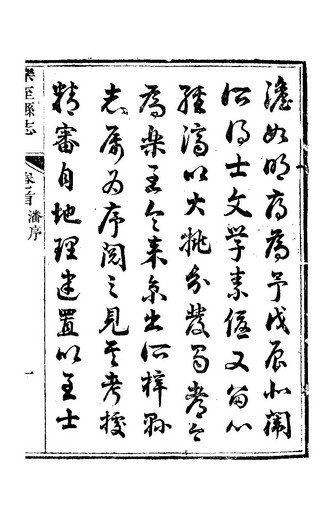 澹如明府為予戊辰北闈
所得士文學素優又留心
經濟以大挑分發蜀
為樂至令来京出所梓縣
志屬為序閱之見其考據
精審自地理建置以至士
樂至縣志
卷首
潘序
一